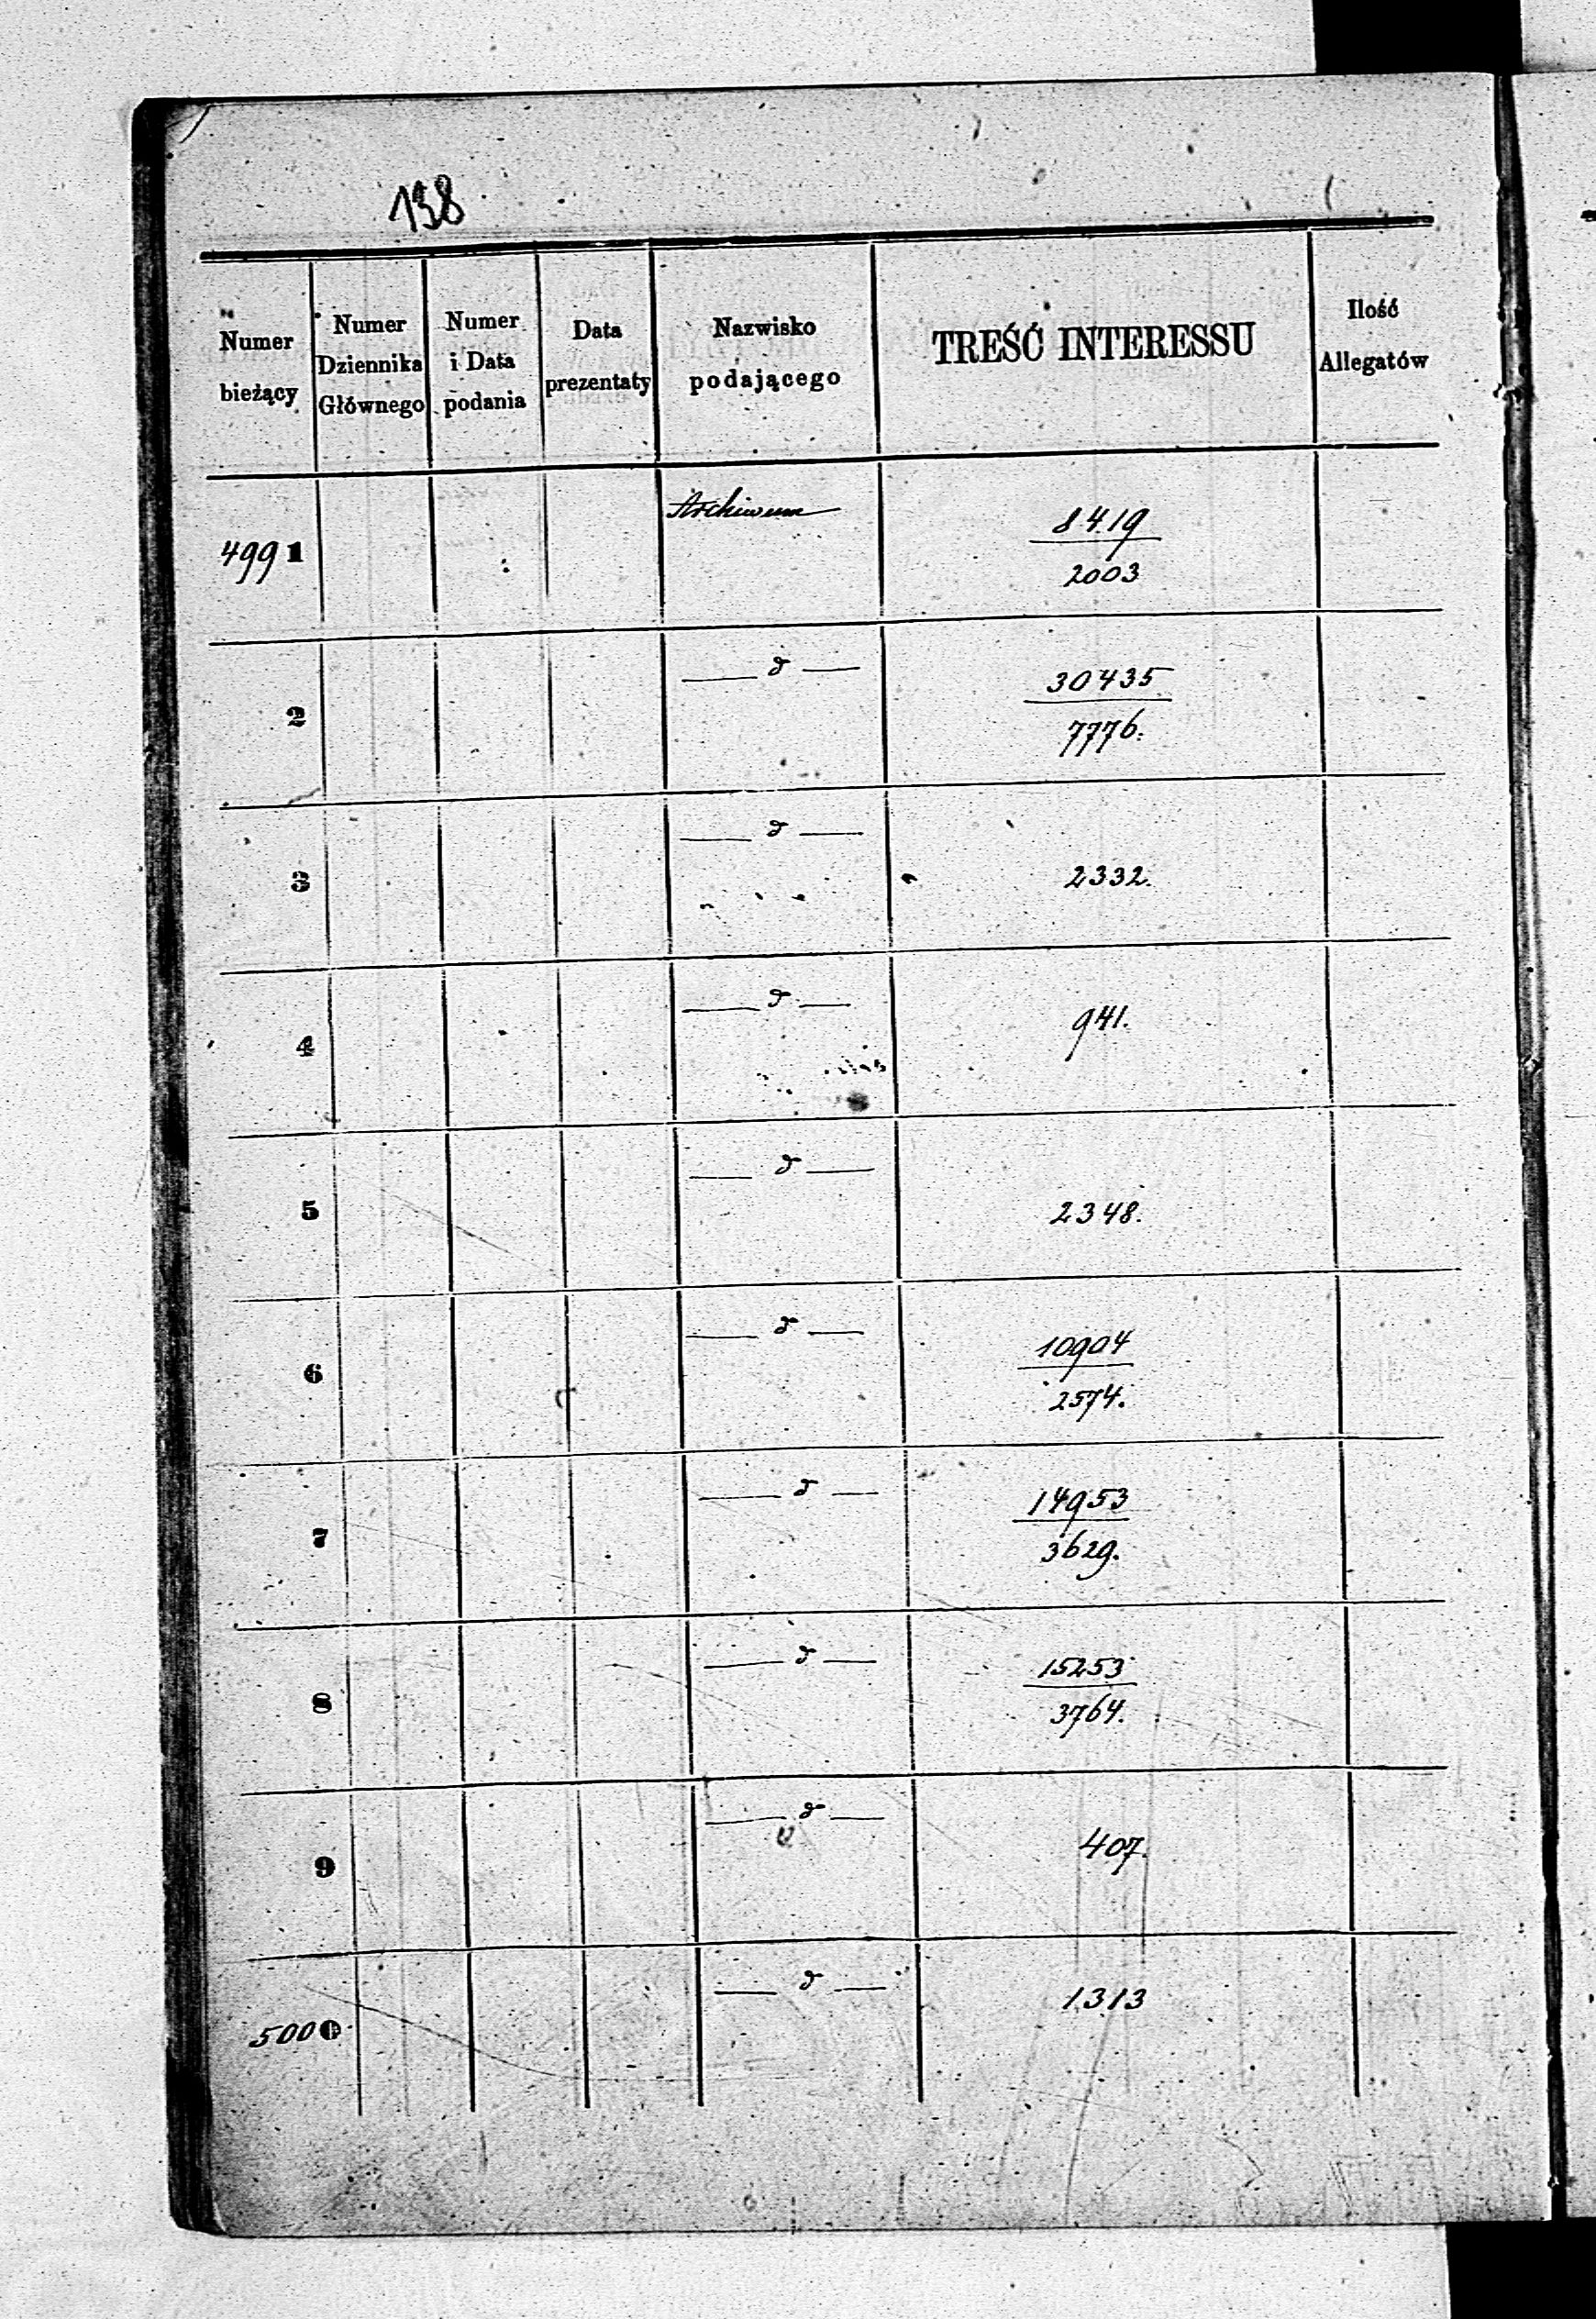 138
Numer bieżący
Numer Dziennika Głównego
Numer i Data podania
Data prezentaty
Nazwisko podającego
TREŚĆ INTERESSU
Ilość Allegatów
4991 Archiwum 8419
2003
2 — d — 30435
7776.
3 — d — 2332.
4 — d — 941.
5 — d — 2348.
6 — d — 10904
2574.
7 — d — 14953
3629.
8 — d — 15253
3764.
9 — d — 407.
5000 — d — 1313